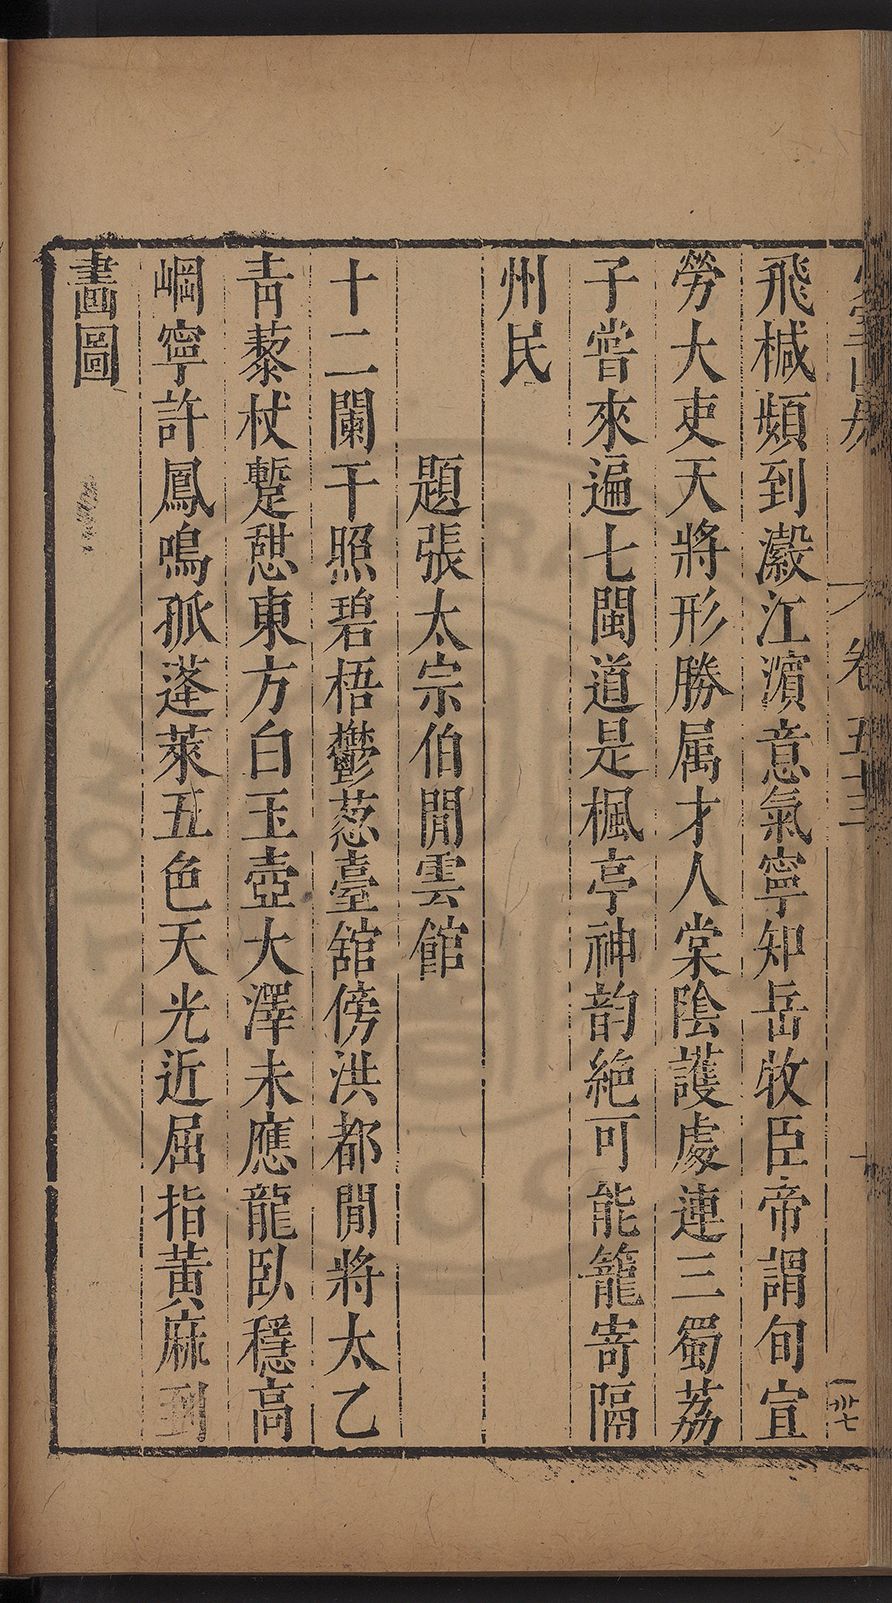 飛椷頻到瀫江濵意氣寧知岳牧臣帝謂旬宣
勞大吏天將形勝属才人棠陰護處連三蜀荔
子嘗來遍七閩道是楓亭神韵絶可能籠寄隔
州民
題張太宗伯閒雲館
十二闌干照碧梧鬱葱臺舘傍洪都閒將太乙
青藜杖蹔憇東方白玉壺大澤未應龍臥穩高
岡寧許鳳鳴孤蓬萊五色天光近屈指黃麻到
畵圖
卷五十三